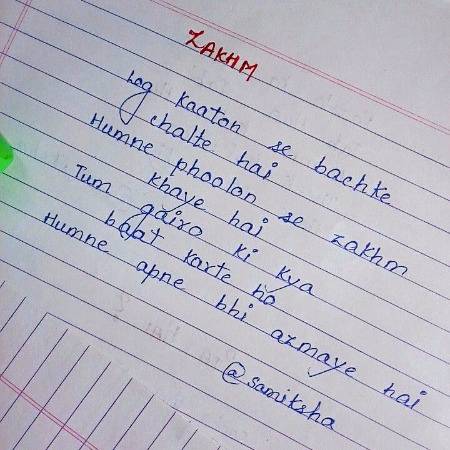 ZAKHM
Log kaaton se bachke
chalte hai
Humne phoolon se zakhm
khaye hai
Tum gairo ki kya
baat karte ho
Humne apne bhi azmaye hai
@samiksha